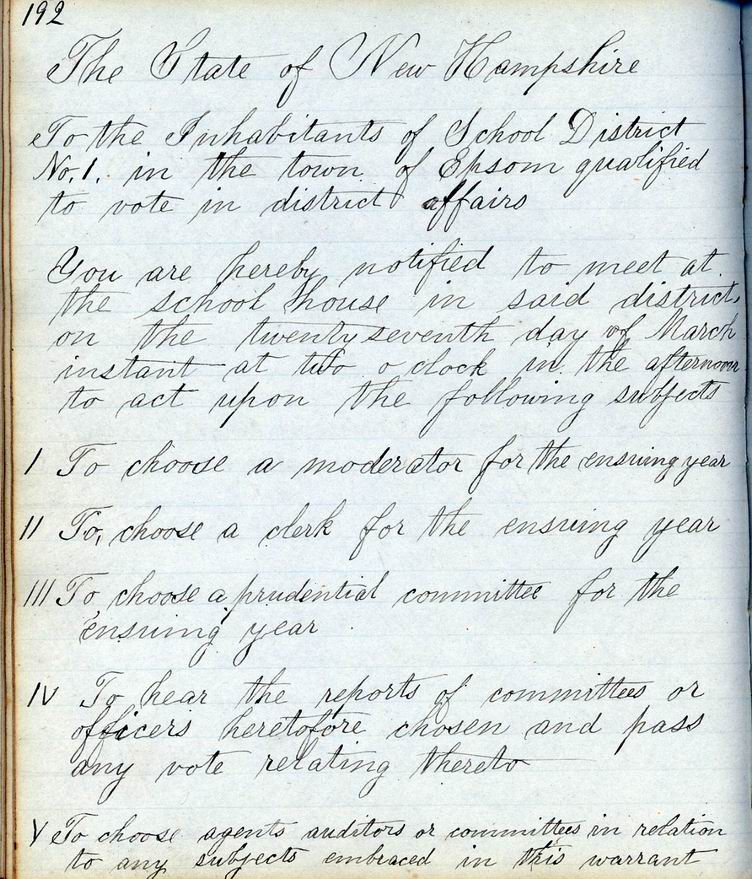 192
The State of New Hampshire
To the Inhabitants of School District
No. 1. in the town of Epsom qualified
to vote in district affairs
You are hereby notified to meet at
the school house in said district,
on the twenty seventh day of March
instant at two o clock in the afternoon
to act upon the following subjects
I To choose a moderator for the ensuing year
II To, choose a clerk for the ensuing year
III To choose a prudential committee for the
ensuing year
IV To hear the reports of committees or
officers heretofore chosen and pass
any vote relating thereto
V To choose agents auditors or committees in relation
to any subjects embraced in this warrant